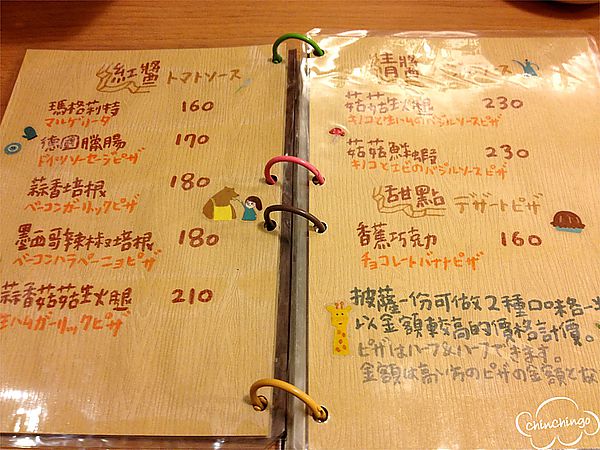 紅醬 トマトソース
瑪格莉特 160
マルゲリータ
德國臘腸 170
ドイツソーセージピザ
蒜香培根 180
ベーコンガーリックピザ
墨西哥辣椒培根 180
ベーコンハラペーニョピザ
蒜香菇菇生火腿 210
生ハムガーリックピザ
青醬
菇菇生火腿 230
キノコと生ハムのバジルソースピザ
菇菇鮮蝦 230
キノコとエビのバジルソースピザ
甜點 デザートピザ
香蕉巧克力 160
チョコレートバナナピザ
披薩一份可做2種口味
以金額較高的價格計價。
ピザはハーフ&ハーフできます。
金額は高い方のピザの金額とな
chinchingo